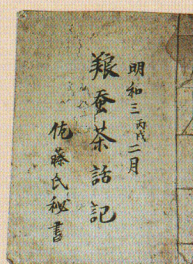 明和三丙戌二月
養蚕茶話記
佐藤氏秘書